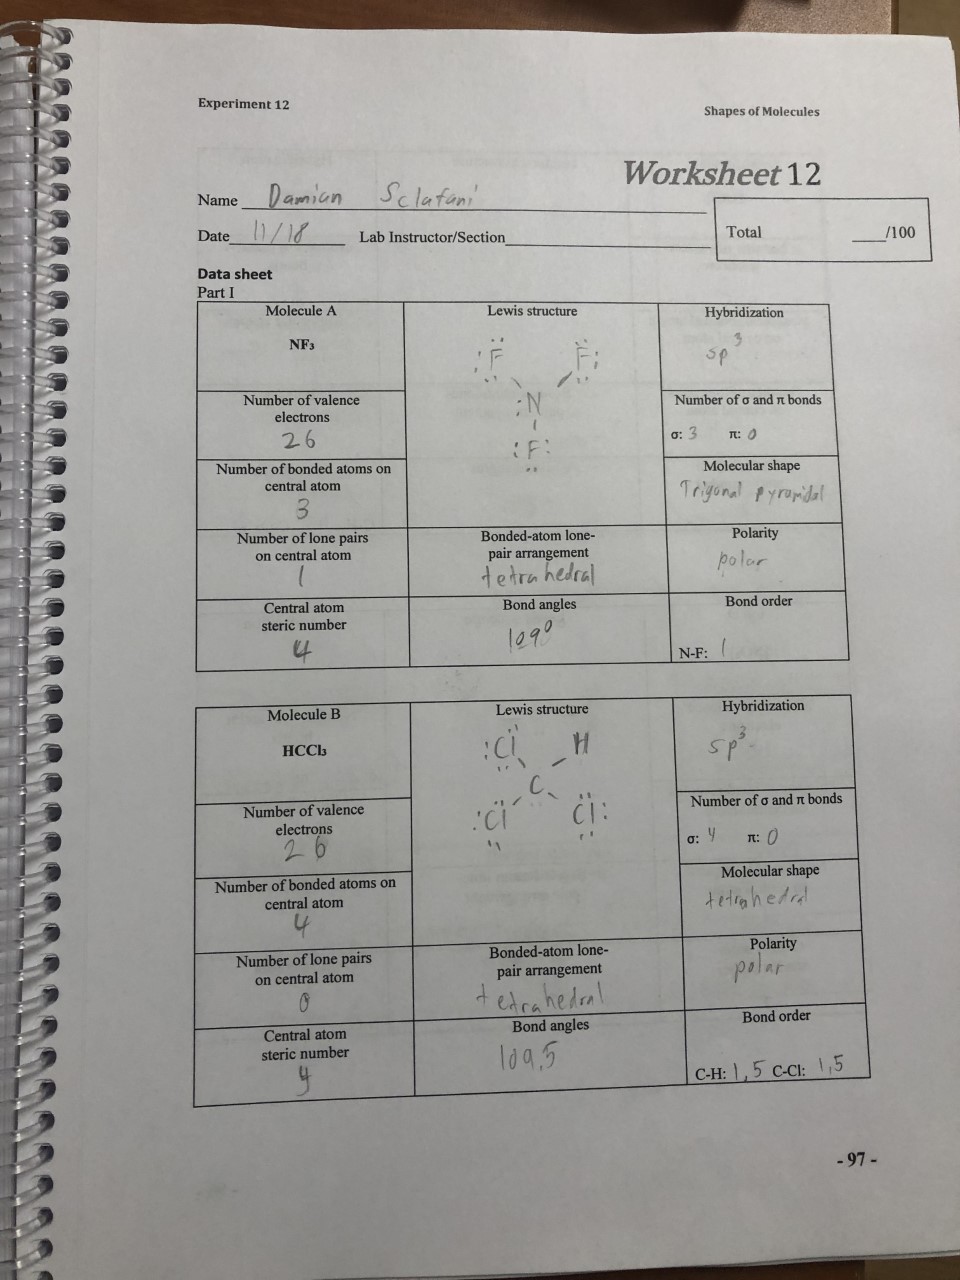 Experiment 12
Shapes of Molecules
Worksheet 12
Name Damian Sclafani
Date 11/18 Lab Instructor/Section
Total /100
Data sheet
Part I
Molecule A
NF₃
Lewis structure
:F F:
:N
:F:
Hybridization
sp³
Number of valence
electrons
26
Number of σ and π bonds
σ: 3 π: 0
Number of bonded atoms on
central atom
3
Molecular shape
Trigonal pyramidal
Number of lone pairs
on central atom
1
Bonded-atom lone-
pair arrangement
tetrahedral
Polarity
polar
Central atom
steric number
4
Bond angles
109°
Bond order
N-F: 1
Molecule B
HCCl₃
Lewis structure
:Cl H
C
:Cl Cl:
Hybridization
sp³
Number of valence
electrons
26
Number of σ and π bonds
σ: 4 π: 0
Number of bonded atoms on
central atom
4
Molecular shape
tetrahedral
Number of lone pairs
on central atom
0
Bonded-atom lone-
pair arrangement
tetrahedral
Polarity
polar
Central atom
steric number
4
Bond angles
109,5
Bond order
C-H: 1,5 C-Cl: 1,5
- 97 -